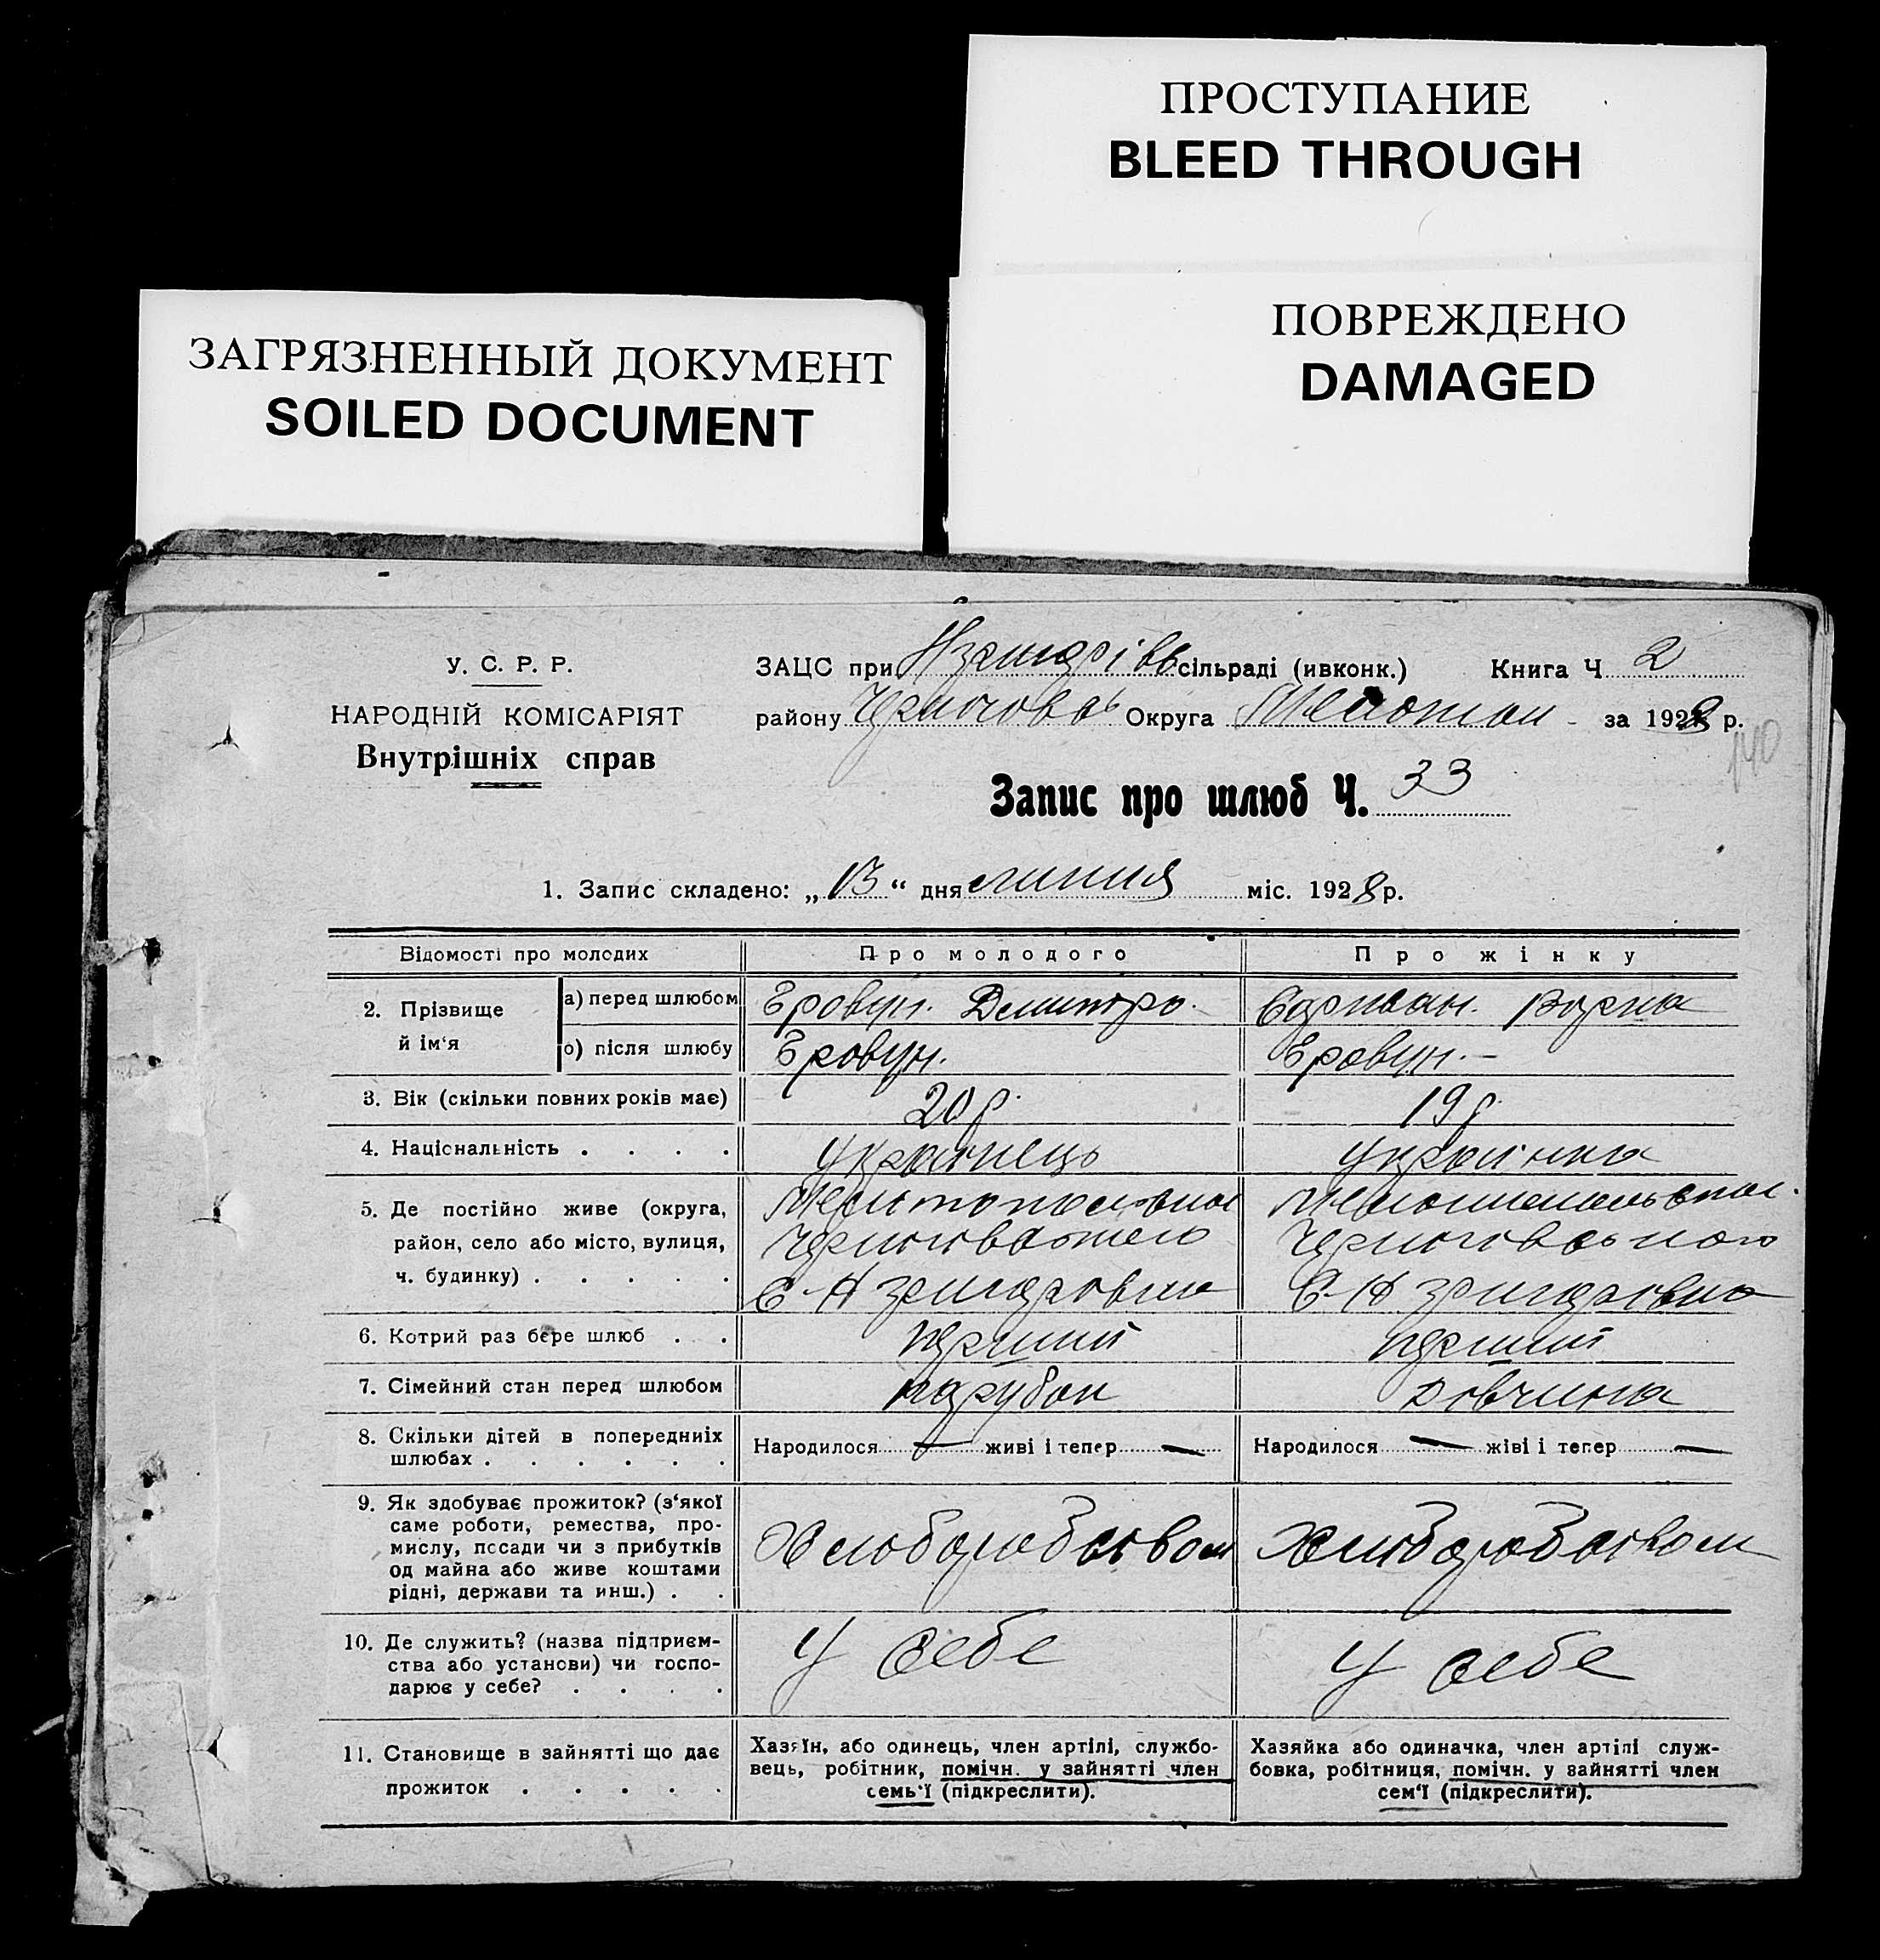 ПРОСТУПАНИЕ
BLEED THROUGH
ПОВРЕЖДЕНО
DAMAGED
ЗАГРЯЗНЕННЫЙ ДОКУМЕНТ
SOILED DOCUMENT
У. С. Р. Р.
НАРОДНІЙ КОМІСАРІЯТ
Внутрішніх справ
ЗАЦС при сільраді (ивконк.) Книга Ч 2
району Округа за 1928 р.
140
Запис про шлюб Ч. 33
1. Запис складено: „13“ дня липня міс. 1928 р.
Відомості про молодих Про молодого Про жінку
2. Прізвище й ім‘я
а) перед шлюбом Еровун. Дмитро.
о) після шлюбу Еровун. Еровун.-
3. Вік (скільки повних років має) 20 р. 19 р.
4. Національність . . . . Українець Українка
5. Де постійно живе (округа, район, село або місто, вулиця, ч. будинку) . . . . .
6. Котрий раз бере шлюб . . перший перший
7. Сімейний стан перед шлюбом парубок дівчина
8. Скільки дітей в попередниіх шлюбах . . . . . . Народилося — живі і тепер — Народилося — жіві і тепер —
9. Як здобуває прожиток? (з‘якої
саме роботи, ремества, про-
мислу, посади чи з прибутків
од майна або живе коштами
рідні, держави та инш.) . .
Хліборобством Хліборобством
10. Де служить? (назва підприєм-
ства або установи) чи госпо-
дарює у себе? . . . .
У себе У себе
11. Становище в зайнятті що дає
прожиток . . . . .
Хазяїн, або одинець, член артілі, службо-
вець, робітник, помічн. у зайнятті член
семь‘ї (підкреслити).
Хазяйка або одиначка, член артілі служ-
бовка, робітниця, помічн. у зайнятті член
сем‘ї (підкреслити).